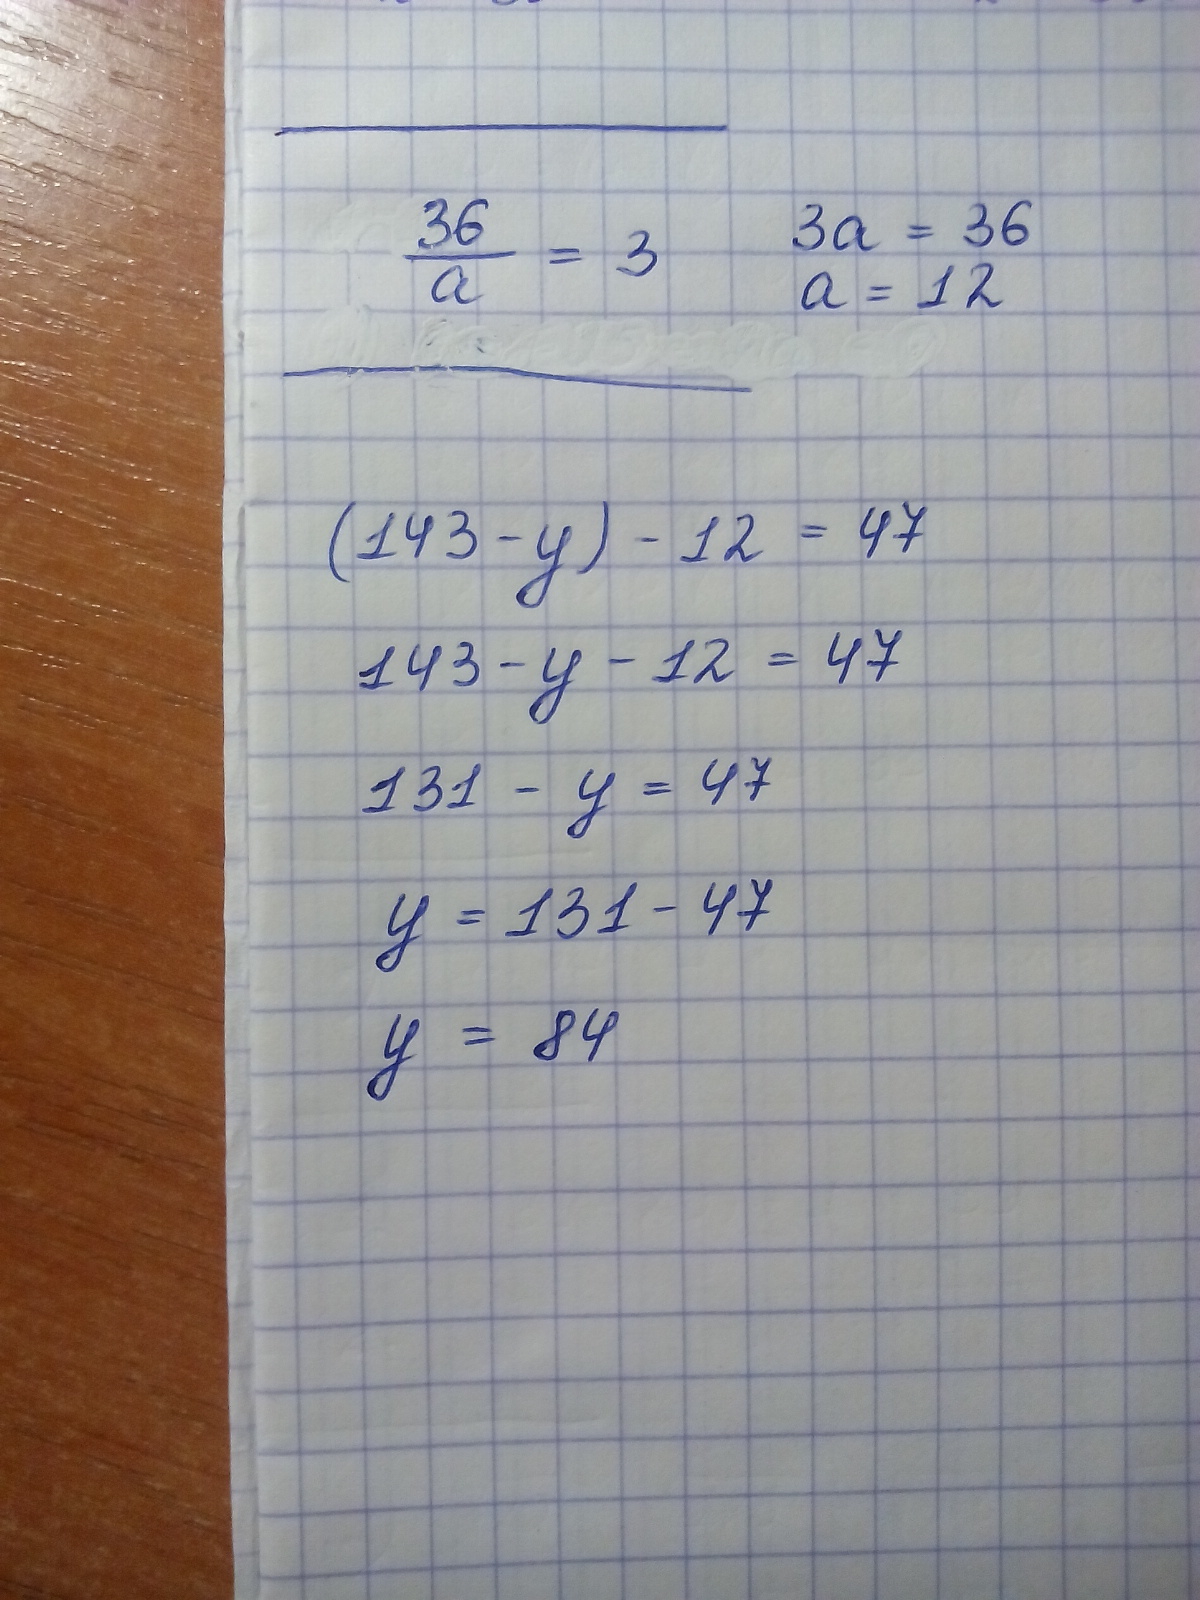 36/a = 3
3a = 36
a = 12
(143 - y) - 12 = 47
143 - y - 12 = 47
131 - y = 47
y = 131 - 47
y = 84